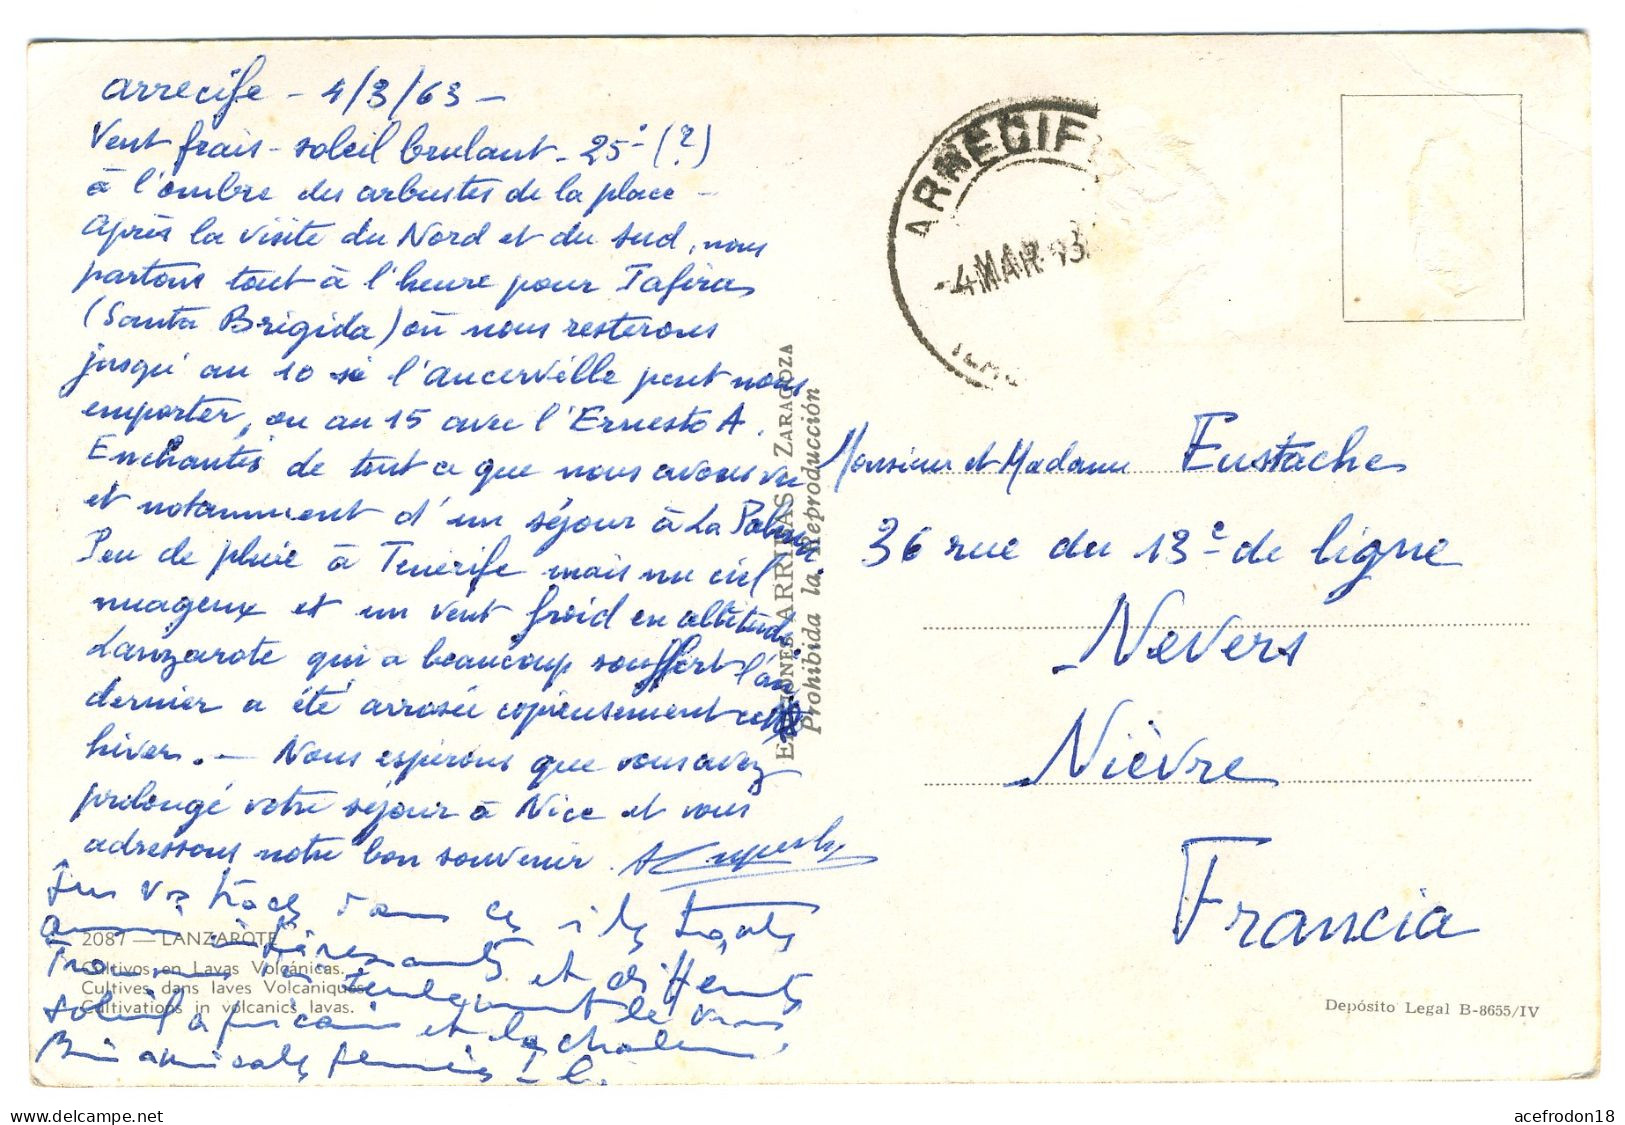 Arrecife - 4/3/63 -
Vent frais - soleil brulant - 25° (?)
à l'ombre des arbustes de la place -
Après la visite du Nord et du sud, nous
partons tout à l'heure pour Tafira
(Santa Brigida) où nous resterons
jusqu'au 10 si l'ancerville peut nous
emporter, ou au 15 avec l'Ernesto A.
Enchantés de tout ce que nous avons vu
et notamment d'un séjour à La Palma
Peu de pluie à Tenerife mais un ciel
nuageux et un vent froid en altitude
Lanzarote qui a beaucoup souffert l'an
dernier a été arrosée copieusement cet
hiver. - Nous espérons que vous avez
prolongé votre séjour à Nice et vous
adressons notre bon souvenir.
traces dans ces îles
intéressants et différents
seulement le vrai
soleil africain et la chaleur
amicales pensées
2087 — LANZAROTE
Cultivos en Lavas Volcánicas.
Cultives dans laves Volcaniques
Cultivations in volcanics lavas.
EDICIONES ARRIBAS ZARAGOZA
Prohibida la Reproducción
ARRECIFE
-4 MAR
Monsieur et Madame Eustache
36 rue du 13e de ligne
Nevers
Nièvre
Francia
Depósito Legal B-8655/IV
acefrodon18